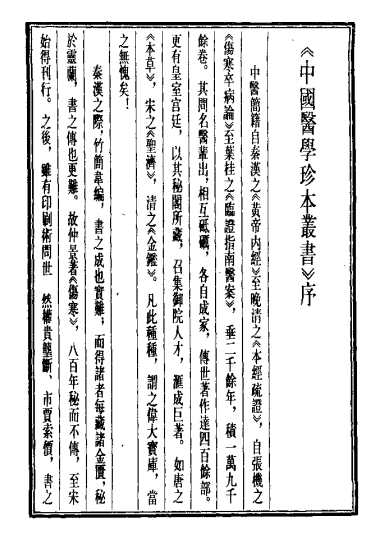 《中國醫學珍本叢書》序
中醫簡籍自秦漢之《黃帝內經》至晚清之《本經疏證》，自張機之
《傷寒卒病論》至葉桂之《臨證指南醫案》，垂二千餘年，積一萬九千
餘卷。其間名醫輩出，相互砥礪，各自成家，傳世著作達四百餘部。
更有皇室宮廷，以其秘閣所藏，召集御院人才，滙成巨著。如唐之
《本草》，宋之《聖濟》，清之《金鑑》。凡此種種，謂之偉大寶庫，當
之無愧矣！
秦漢之際，竹簡韋編，書之成也實難；而得諸者每藏諸金匱，秘
於靈蘭，書之傳也更難。故仲景著《傷寒》，八百年秘而不傳，至宋
始得刊行。之後，雖有印刷術問世 然權貴壟斷、市賈索價，書之